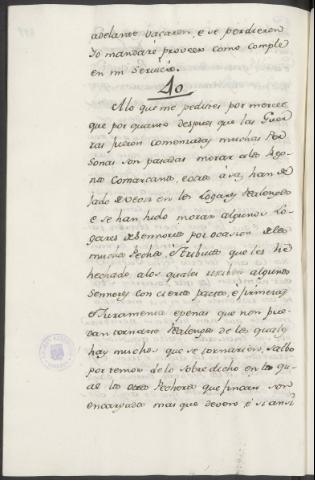 adelante vacaren, e se perdieren
Yo mandaré proveer como comple
en mi servicio.
40
Alo que me pedistes por merced
que por quanto despues que las Guer
ras fueron comenzadas muchas Per
sonas son pasadas morar alos Rego
nos Comarcanos, eotro à sa, han de
jado de vevir en los Logares Realengos
e se han hido morar algunos Lo
gares de Sennorios por ocasion delos
muchos Pechos, è Tributos que les he
hechado, alos quales resciben algunos
Sennores con ciertos pactos, è primeras
è Juramentos epenas que non pue
dan tornarse Realengos de los quales
hay muchos que se tornarien, salbo
por temor de lo sobredicho en lo qu
al los otros Pecheros que fincan son
encargados mas que deven, è si ansi